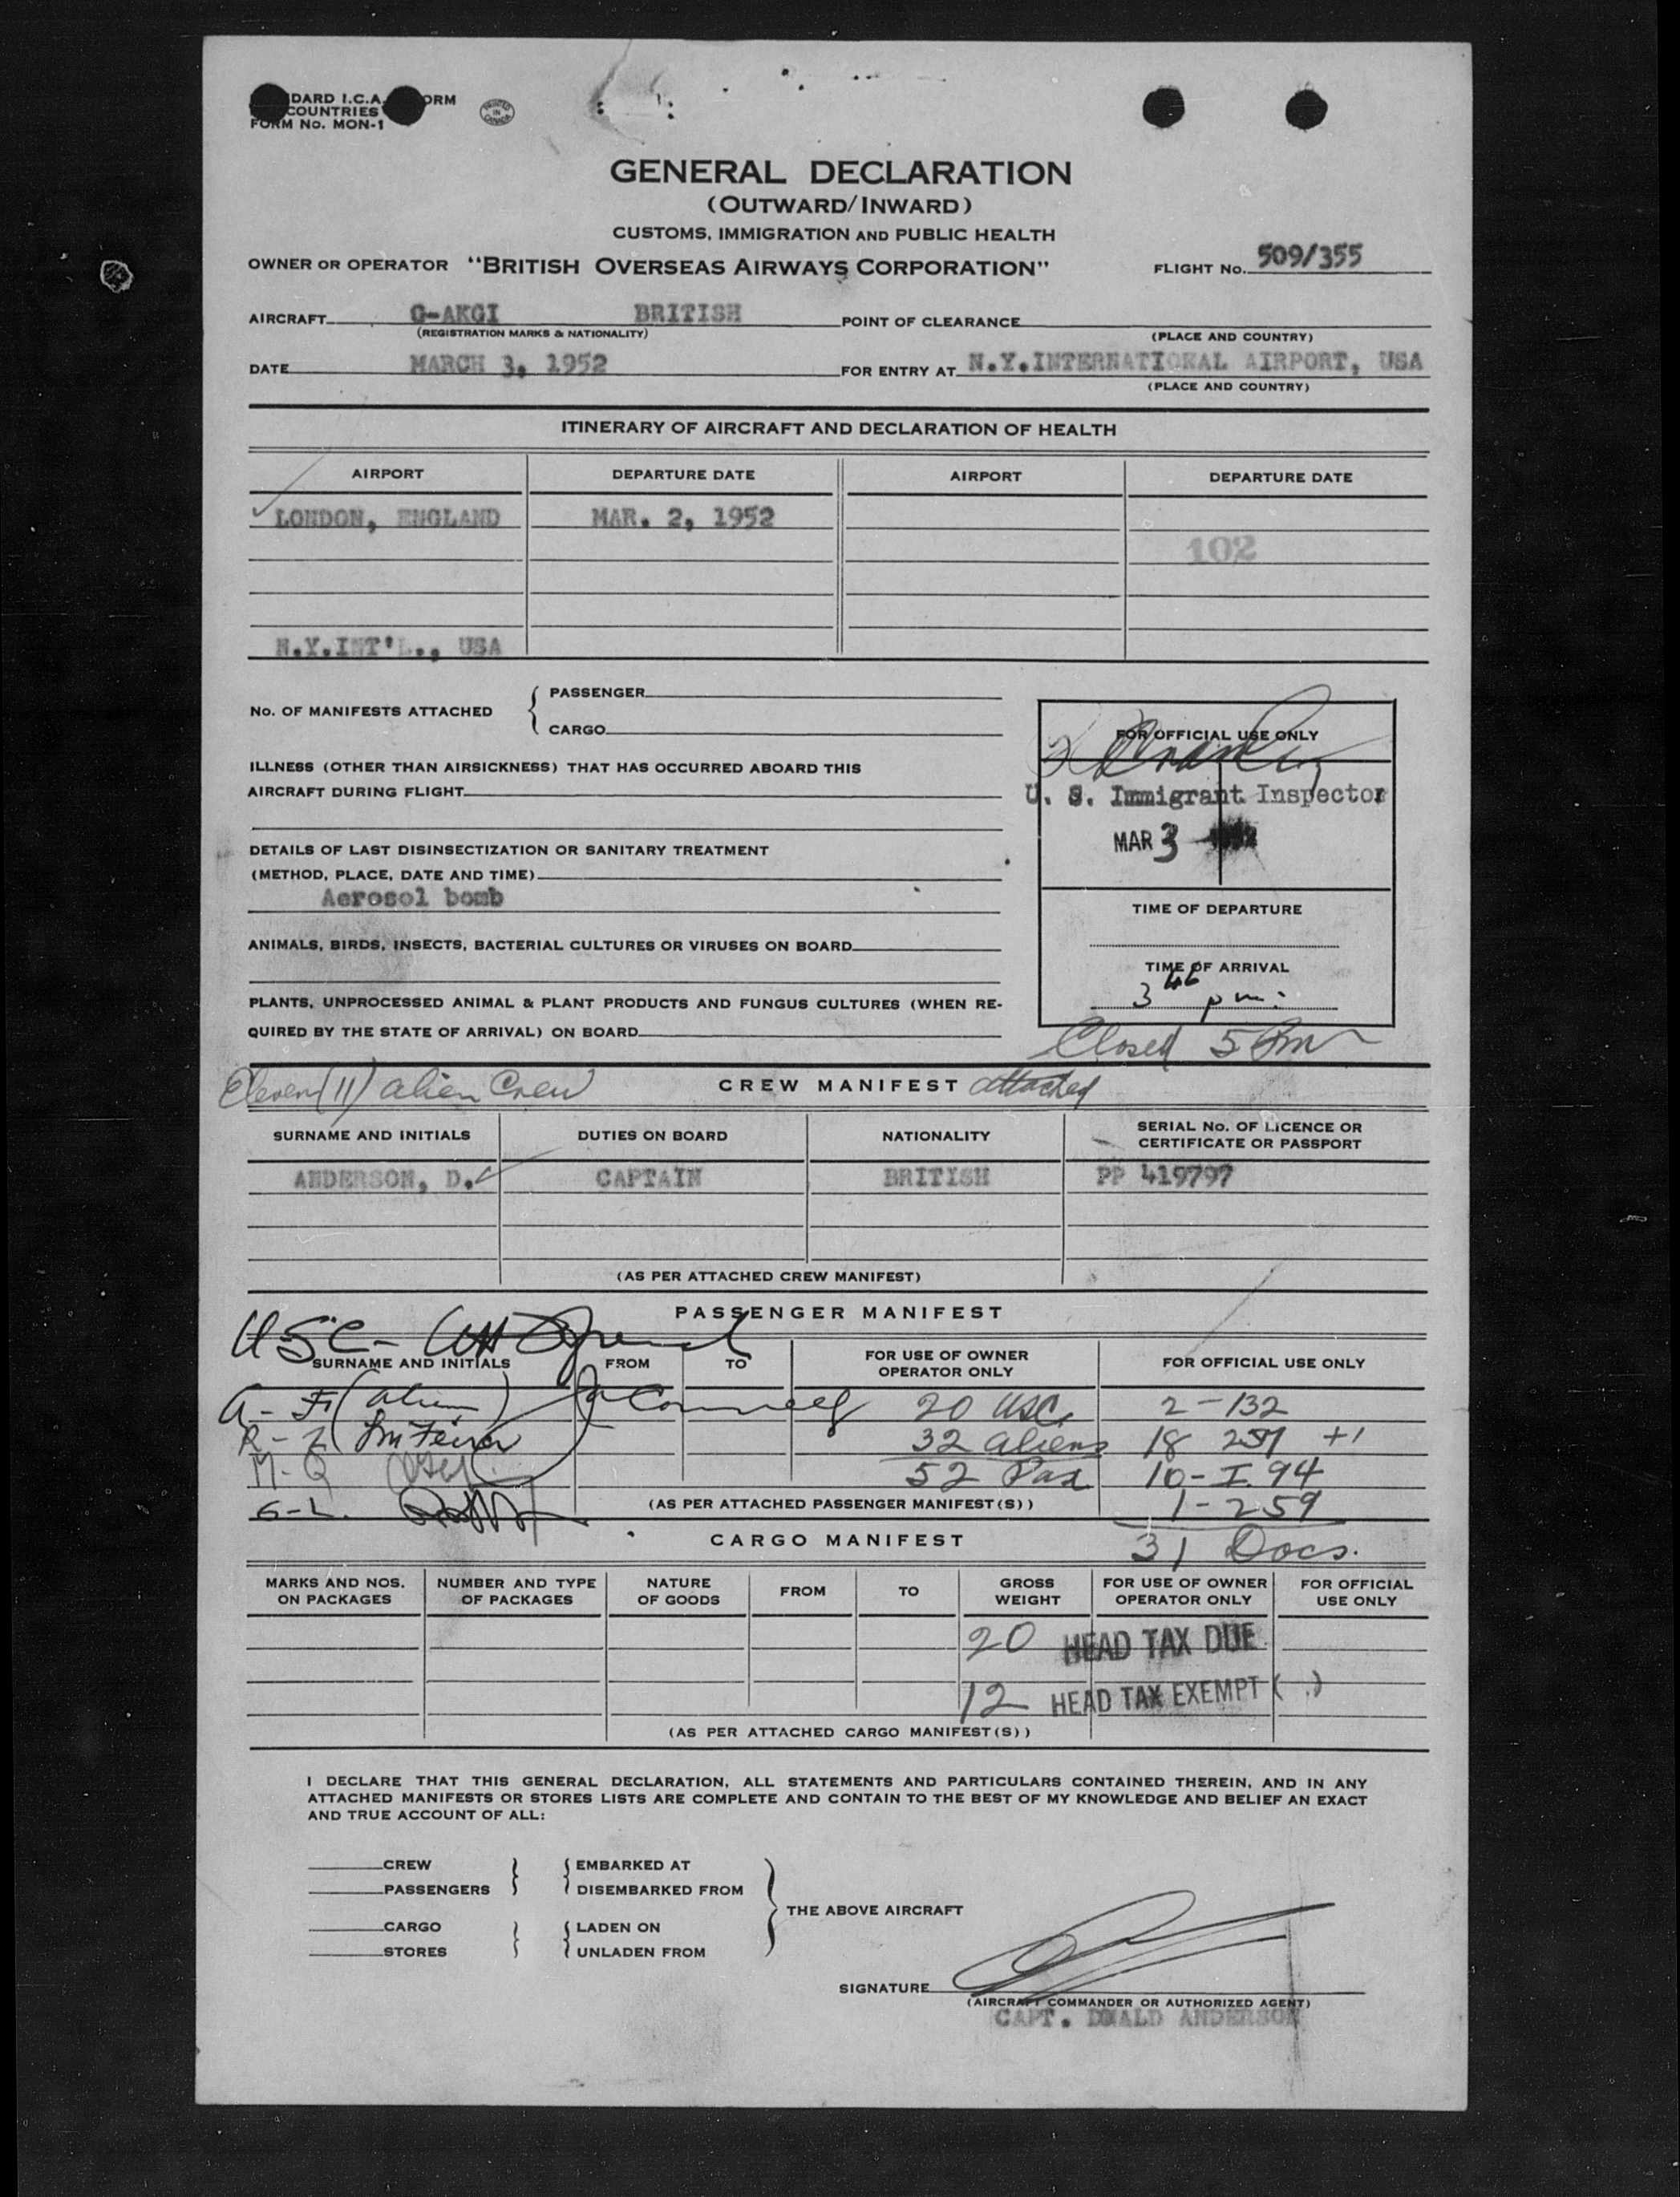 DARD I.C.A. ORM
COUNTRIES
FORM No. MON-1
PRINTED IN CANADA
GENERAL DECLARATION
(OUTWARD/INWARD)
CUSTOMS, IMMIGRATION AND PUBLIC HEALTH
OWNER OR OPERATOR "BRITISH OVERSEAS AIRWAYS CORPORATION" FLIGHT No. 509/355
AIRCRAFT G-AKGI BRITISH POINT OF CLEARANCE
(REGISTRATION MARKS & NATIONALITY) (PLACE AND COUNTRY)
DATE MARCH 3, 1952 FOR ENTRY AT N.Y.INTERNATIONAL AIRPORT, USA
(PLACE AND COUNTRY)
ITINERARY OF AIRCRAFT AND DECLARATION OF HEALTH
AIRPORT DEPARTURE DATE AIRPORT DEPARTURE DATE
LONDON, ENGLAND MAR. 2, 1952
102
N.Y.INT'L., USA
No. OF MANIFESTS ATTACHED { PASSENGER
CARGO
FOR OFFICIAL USE ONLY
ILLNESS (OTHER THAN AIRSICKNESS) THAT HAS OCCURRED ABOARD THIS
AIRCRAFT DURING FLIGHT
U. S. Immigrant Inspector
MAR 3
DETAILS OF LAST DISINSECTIZATION OR SANITARY TREATMENT
(METHOD, PLACE, DATE AND TIME)
Aerosol bomb
TIME OF DEPARTURE
ANIMALS, BIRDS, INSECTS, BACTERIAL CULTURES OR VIRUSES ON BOARD
TIME OF ARRIVAL
3 46 pm.
PLANTS, UNPROCESSED ANIMAL & PLANT PRODUCTS AND FUNGUS CULTURES (WHEN RE-
QUIRED BY THE STATE OF ARRIVAL) ON BOARD
Closed 5 Pm
Eleven (11) alien Crew CREW MANIFEST attached
SURNAME AND INITIALS DUTIES ON BOARD NATIONALITY SERIAL No. OF LICENCE OR
CERTIFICATE OR PASSPORT
ANDERSON, D. CAPTAIN BRITISH PP 419797
(AS PER ATTACHED CREW MANIFEST)
PASSENGER MANIFEST
USC-
SURNAME AND INITIALS FROM TO FOR USE OF OWNER
OPERATOR ONLY FOR OFFICIAL USE ONLY
A-F (alien) 20 USC. 2-132
R-Z 32 aliens 18 257 +1
M-Q 52 Pax 10-I.94
G-L. (AS PER ATTACHED PASSENGER MANIFEST(S)) 1-259
CARGO MANIFEST 31 Docs.
MARKS AND NOS.
ON PACKAGES NUMBER AND TYPE
OF PACKAGES NATURE
OF GOODS FROM TO GROSS
WEIGHT FOR USE OF OWNER
OPERATOR ONLY FOR OFFICIAL
USE ONLY
20 HEAD TAX DUE
12 HEAD TAX EXEMPT ( )
(AS PER ATTACHED CARGO MANIFEST(S))
I DECLARE THAT THIS GENERAL DECLARATION, ALL STATEMENTS AND PARTICULARS CONTAINED THEREIN, AND IN ANY
ATTACHED MANIFESTS OR STORES LISTS ARE COMPLETE AND CONTAIN TO THE BEST OF MY KNOWLEDGE AND BELIEF AN EXACT
AND TRUE ACCOUNT OF ALL:
CREW } { EMBARKED AT
PASSENGERS DISEMBARKED FROM
THE ABOVE AIRCRAFT
CARGO } { LADEN ON
STORES UNLADEN FROM
SIGNATURE
(AIRCRAFT COMMANDER OR AUTHORIZED AGENT)
CAPT. DNALD ANDERSON